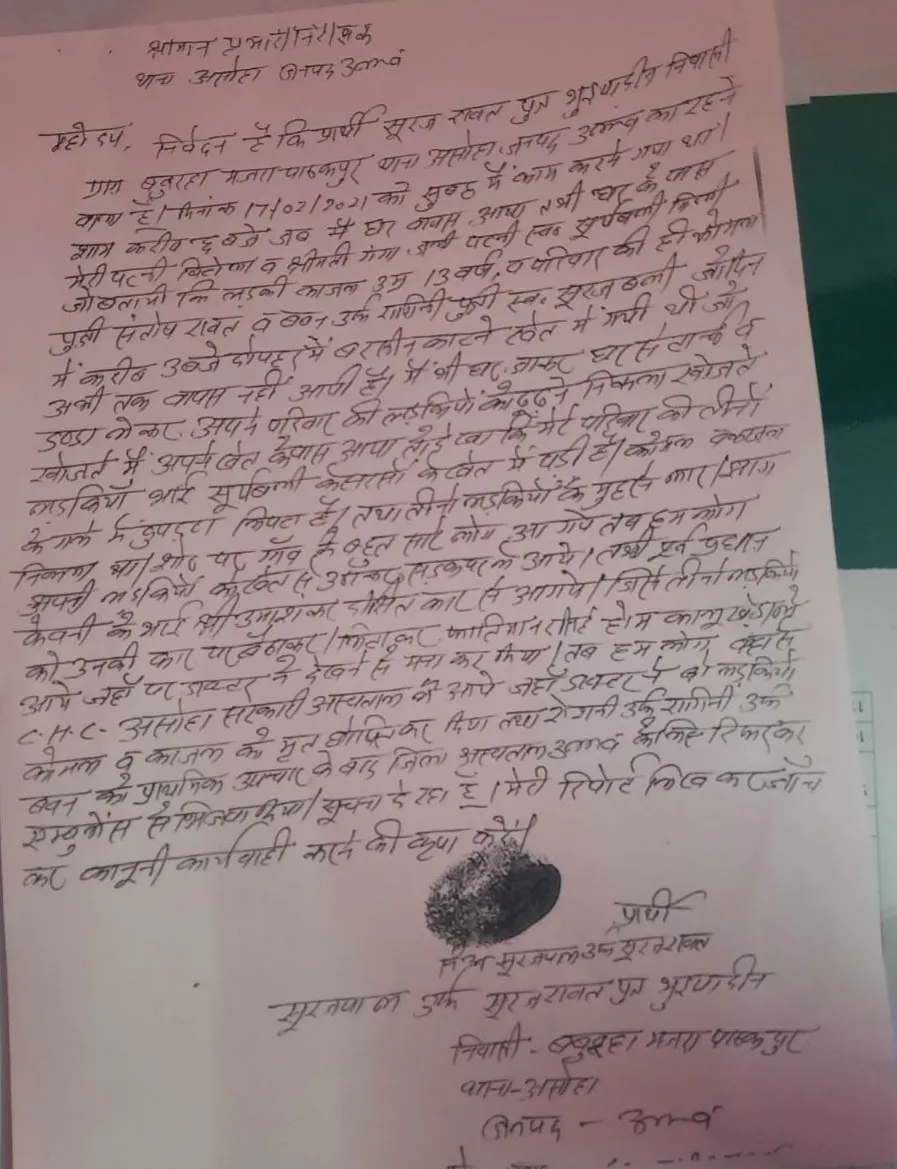 श्रीमान प्रभारी निरीक्षक
थाना असोहा जनपद उन्नाव
महोदय,
निवेदन है कि प्रार्थी सूरज रावत पुत्र निवासी
ग्राम बबुरहा मजरा पाठकपुर थाना असोहा जनपद उन्नाव का रहने
वाला है। दिनांक 17/02/2021 को सुबह मैं काम करने गया था।
शाम करीब 6 बजे जब मैं घर वापस आया तभी घर के पास
मेरी पत्नी व श्रीमती गंगा पत्नी स्व० सूर्यबली मिली
जो बतायी कि लड़की काजल उम्र 13 वर्ष, व परिवार की ही कोमल
पुत्री संतोष रावत व उर्फ रागिनी पुत्री स्व० सूरजबली जो दिन
में करीब 3 बजे दोपहर में बरसीन काटने खेत में गयी थी जो
अभी तक वापस नहीं आयी है। मैं भी घर जाकर घर से टार्च व
डण्डा लेकर अपने परिवार की लड़कियों को ढूढने निकला खोजते
खोजते मैं अपने खेत के पास आया तो देखा कि मेरे परिवार की तीनो
लड़कियाँ भाई सूर्यबली के सरसों के खेत में पड़ी है। कोमल व काजल
के गले में दुपट्टा लिपटा है। तथा तीनो लड़कियों के मुह से लार/झाग
निकला था। शोर पर गाँव के बहुत सारे लोग आ गये तब हम लोग
अपनी लड़कियों को खेत से उठाकर सड़क पर ले आये। तभी पूर्व प्रधान
के पती के भाई श्री उमाशंकर दीक्षित कार से आ गये। जिसे तीनो लड़कियों
को उनकी कार पर बैठाकर/लिटाकर होम कालूखेड़ा ले
आये जहाँ पर डाक्टर ने देखने से मना कर दिया। तब हम लोग वहाँ से
C.H.C. असोहा सरकारी अस्पताल ले आये जहाँ डाक्टर ने दो लड़कियों
कोमल व काजल को मृत घोषित कर दिया तथा रोशनी उर्फ रागिनी उर्फ
को प्राथमिक उपचार के बाद जिला अस्पताल उन्नाव के लिए रिफर कर
एम्बुलेंस से भिजवा दिया। सूचना दे रहा हूँ। मेरी रिपोर्ट लिख कर जाँच
कर कानूनी कार्यवाही करने की कृपा करें।
प्रार्थी
सूरजपाल उर्फ सूरज रावत
सूरजपाल उर्फ सूरज रावत पुत्र
निवासी - बबुरहा मजरा पाठकपुर
थाना - असोहा
जनपद - उन्नाव